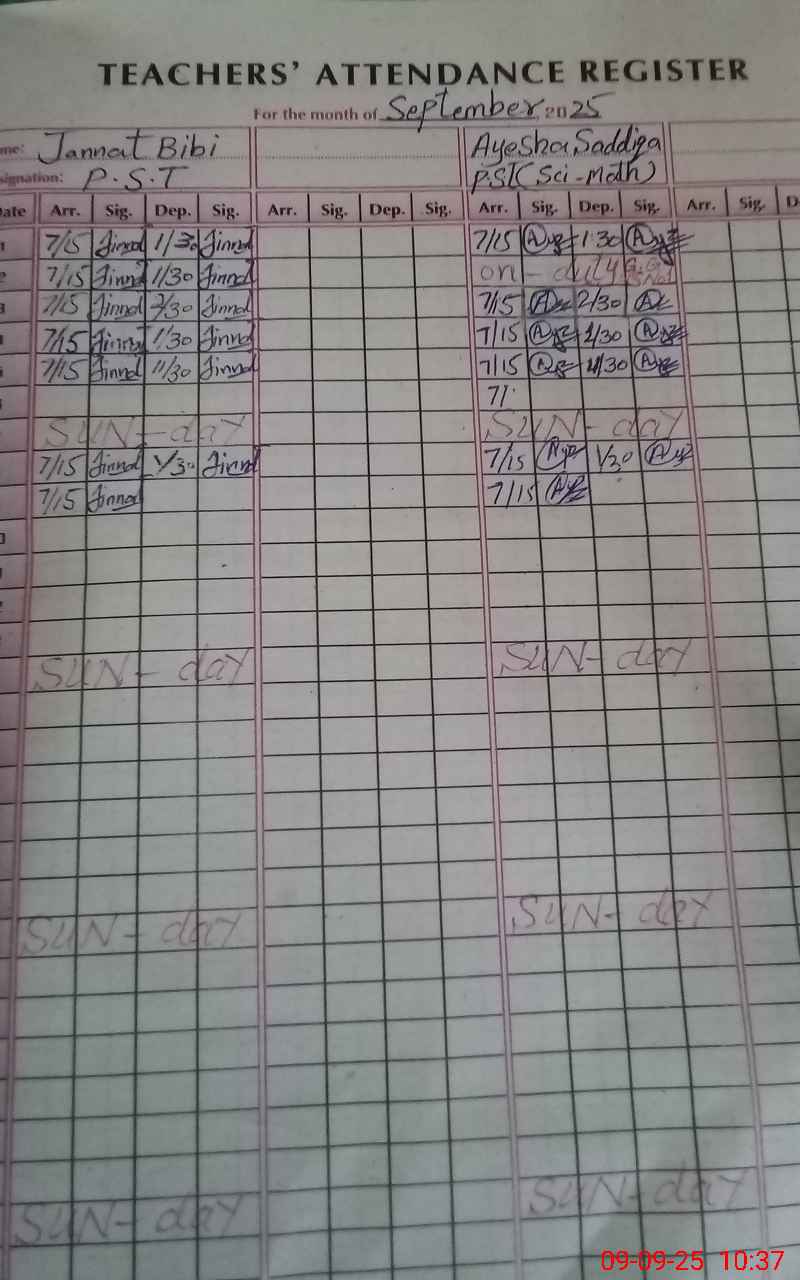 TEACHERS' ATTENDANCE REGISTER
For the month of September 2025
me: Jannat Bibi Ayesha Saddiqa
signation: P.S.T PST (Sci-Math)
ate Arr. Sig. Dep. Sig. Arr. Sig. Dep. Sig. Arr. Sig. Dep. Sig. Arr. Sig. D
1 7/15 Jinnd 1/30 Jinnd 7/15 1:30
2 7/15 Jinnd 1/30 Jinnd on-duty
3 7/15 Jinnd 2/30 Jinnd 7/15 2/30
7/15 Jinnd 1/30 Jinnd 7/15 1/30
7/15 Jinnd 11/30 Jinnd 7/15 30
7/
SUN-day SUN-day
7/15 Jinnd 1/30 Jinnd 7/15 1/30
7/15 Jinnd 7/15
SUN-day SUN-day
SUN-day SUN-day
SUN-day SUN-day
09-09-25 10:37